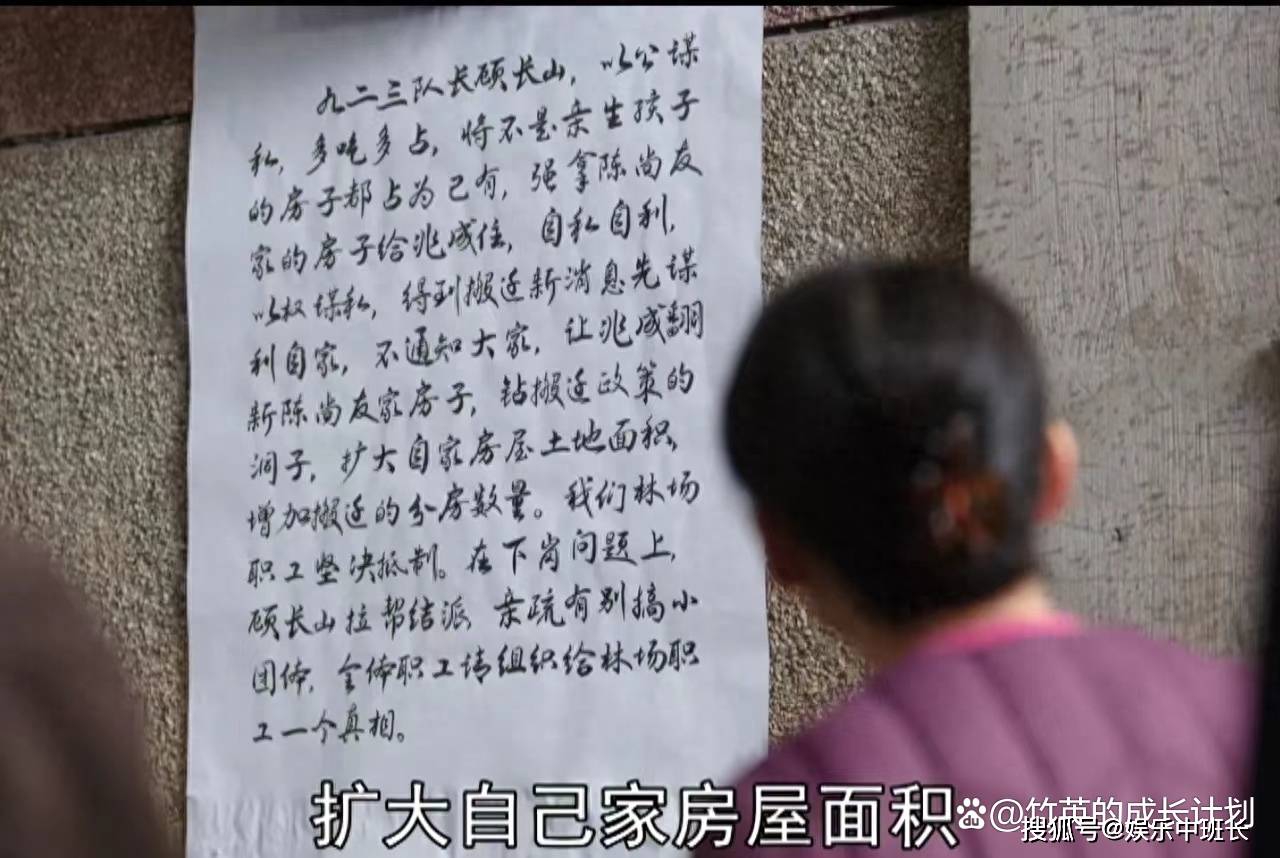 九二三队长顾长山，以公谋
私，多吃多占，将不是亲生孩子
的房子都占为己有，强拿陈尚友
家的房子给兆成住，自私自利，
以权谋私，得到搬迁新消息先谋
利自家，不通知大家，让兆成翻
新陈尚友家房子，钻搬迁政策的
洞子，扩大自家房屋土地面积，
增加搬迁的分房数量。我们林场
职工坚决抵制。在下岗问题上，
顾长山拉帮结派，亲疏有别搞小
团体，全体职工请组织给林场职
工一个真相。
扩大自己家房屋面积
@竹苒的成长计划
搜狐号@娱乐中班长